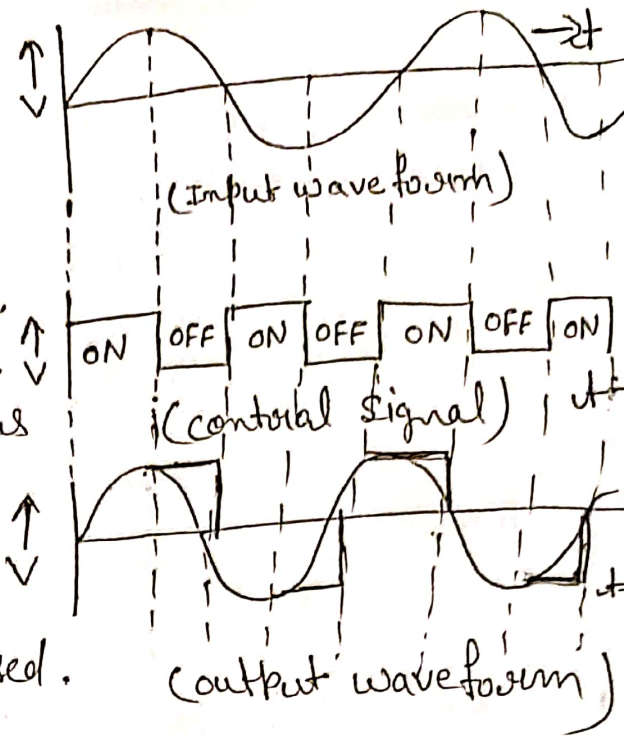 V
→t
(Input waveform)
V
ON OFF ON OFF ON OFF ON
(control signal) t
V
t
(output waveform)